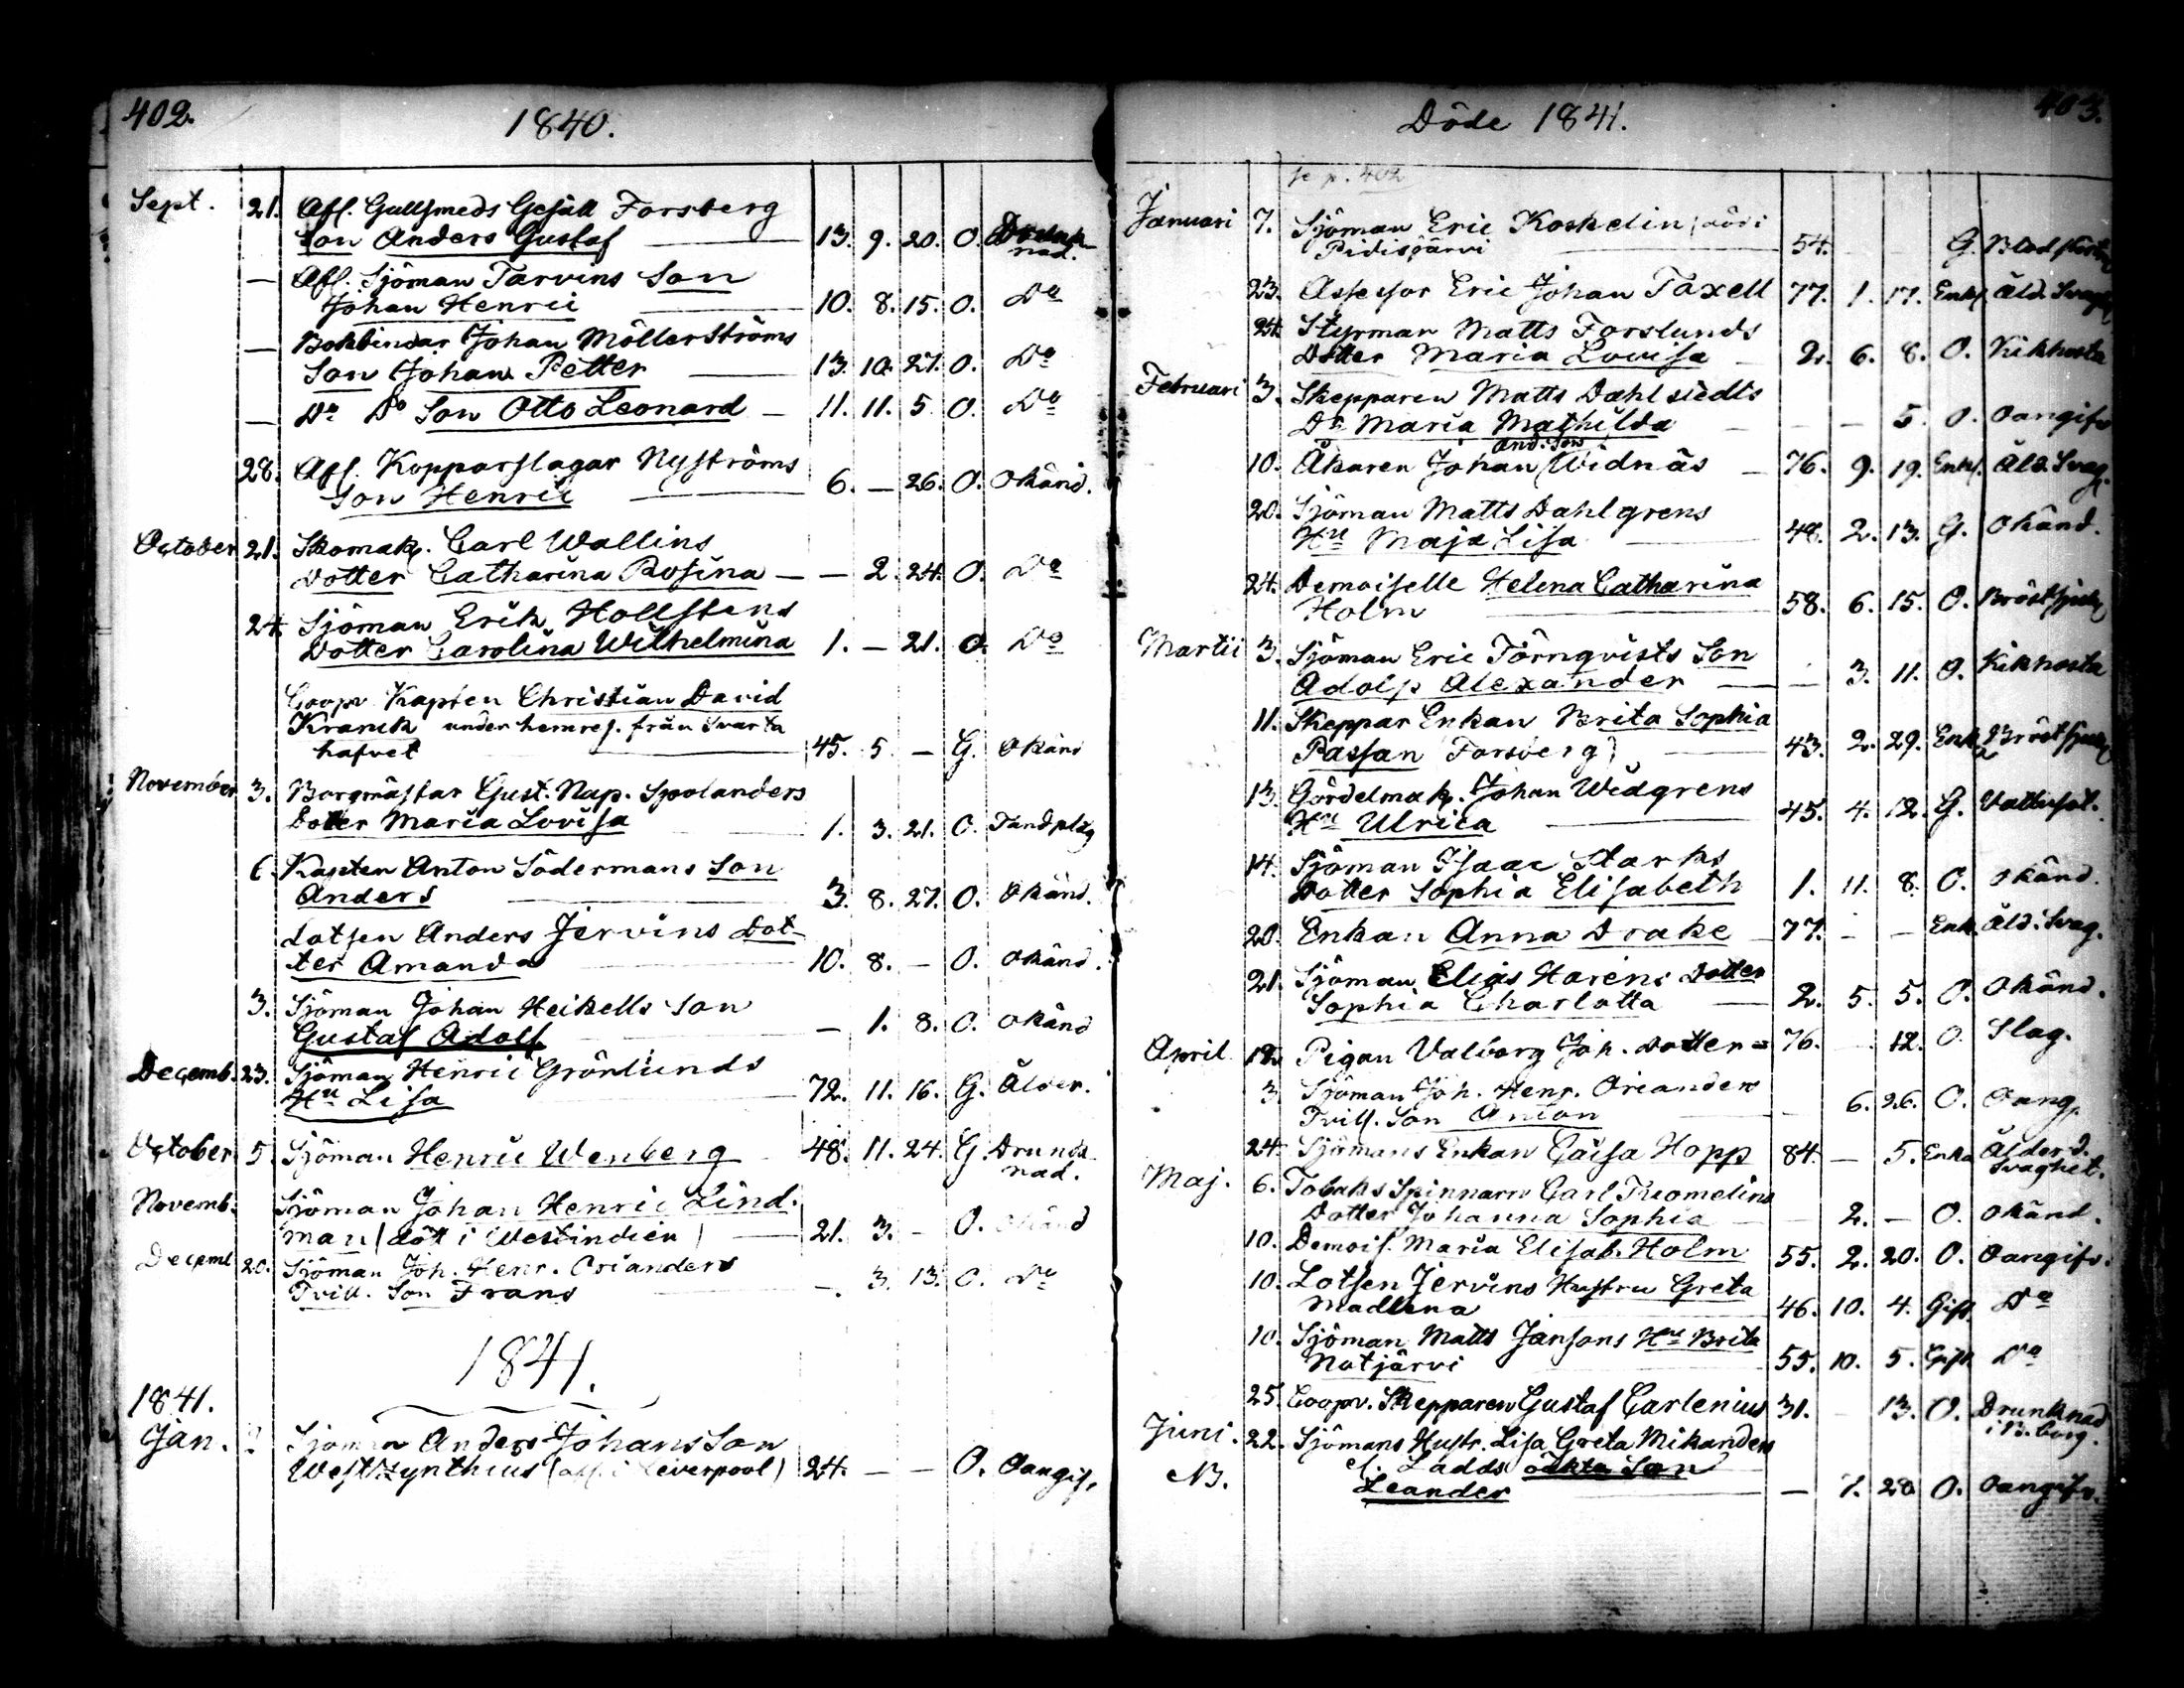 402.
1840.
Sept. 21. Afl. Gullsmeds Gesäll Forsberg
Son Anders Gustaf 13. 9. 20. O. Drunk-
nad.
— Afl. Sjöman Tarvins Son
Johan Henric 10. 8. 15. O. Do
— Bokbindar Johan Möllerströms
Son Johan Petter 13. 10. 27. O. Do
— Do Do Son Otto Leonard — 11. 11. 5. O. Do
28. Afl. Kopparslagar Nyströms
Son Henric 6. — 26. O. Okänd.
October 21. Skomak. Carl Wallins
Dotter Catharina Rosina — — 2. 24. O. Do
24. Sjöman Erik Hollstens
Dotter Carolina Wilhelmina 1. — 21. O. Do
Coopv. Kapten Christian David
Kranck under hemres. från Svarta
hafvet 45. 5. — G. Okänd
November 3. Borgmästar Gust. Nap. Spolanders
Dotter Maria Lovisa 1. 3. 21. O. Tandplåg
6. Kapten Anton Södermans Son
Anders 3. 8. 27. O. Okänd.
Lotsen Anders Jervins Dot-
ter Amanda 10. 8. — O. Okänd.
3. Sjöman Johan Heikells Son
Gustaf Adolf — 1. 8. O. Okänd
Decemb. 23. Sjöman Henric Grönlunds
Hu Lisa 72. 11. 16. G. Ålder.
October 5. Sjöman Henric Wenberg 48. 11. 24. G. Drunk-
nad.
Novemb. Sjöman Johan Henric Lind-
man (död i Westindien) 21. 3. - O. Okänd
Decemb 20. Sjöman Joh. Henr. Orianders
Tvill. Son Frans —. 3. 13. O. Do
1841.
1841.
Jan. Sjöman Anders Johansson
Westzynthius ( i Liverpool) 24. — — O. Oangif.
403.
Döde 1841.
se p. 402
Januari 7. Sjöman Eric Koskelin (död i
Pidisjärvi 54. G. Blodstörtn
23. Assessor Eric Johan Taxell 77. 1. 17. Enkl. Åld. Svagh
24. Styrman Matts Forslunds
Dotter Maria Lovisa 2. 6. 8. O. Kikhosta
Februari 3. Skepparen Matts Dahlstedts
Dr Maria Mathilda — — 5. O. Oangifv
And:Son
10. Åkaren Johan (Widnäs — 76. 9. 19. Enkl. Åld. Svag.
20. Sjöman Matts Dahlgrens
Hu Maja Lisa 48. 2. 13. G. Okänd.
24. Demoiselle Helena Catharina
Holm 58. 6. 15. O. Bröstsjuk
Martii 3. Sjöman Eric Törnqvists Son
Adolp Alexander — 3. 11. O. Kikhosta
11. Skeppar Enkan Brita Sophia
Passan Forsberg) 43. 2. 29. Enka Bröstsjuk
13. Gördelmak. Johan Widgrens
Hu Ulrica 45. 4. 12. G. Vattusot.
14. Sjöman Isaac Starks
Dotter Sophia Elisabeth 1. 11. 8. O. Okänd.
20. Enkan Anna Drake 77. - - Enk. Åld. Svag.
21. Sjöman Elias Horens Dotter
Sophia Charlotta 2. 5. 5. O. Okänd.
April 12. Pigan Valborg Joh. Dotter = 76. 12. O. Slag.
3 Sjöman Joh. Henr. Orianders
Tvill. Son Anton — 6. 26. O. Oang.
24. Sjömans Enkan Caisa Hopp 84. — 5. Enka Ålderd.
Svaghet.
Maj. 6. Tobaks Spinnarn Carl Tuomelins
Dotter Johanna Sophia — 2. — O. Okänd.
10. Demois. Maria Elisab. Holm 55. 2. 20. O. Oangifv.
10. Lotsen Jervins Hustru Greta
Madlena 46. 10. 4. Gift Do
10. Sjöman Matts Jansons Hu Brita
Notjärvi 55. 10. 5. Gift Do
25. Coopv. Skepparen Gustaf Carlenius 31. 13. O. Drunknad
i N. borg.
Juni. 22. Sjömans Hustr. Lisa Greta Mikanders
NB. el. Ladds oäkta Son
Leander — 7. 28 O. Oangifv.